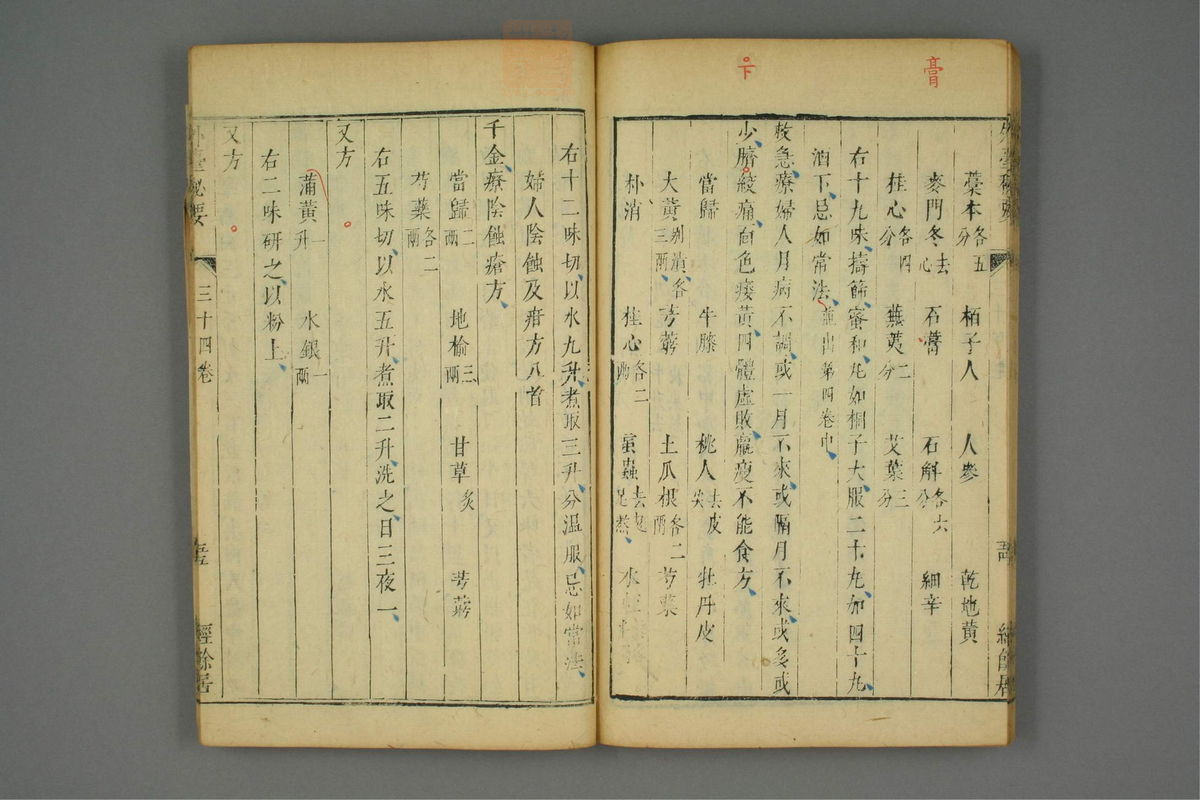 膏
下
藁本各五分 栢子人 人參 乾地黃
麥門冬去心 石膏 石斛各六分 細辛
桂心各四分 蕪荑二分 艾葉三分
右十九味擣篩蜜和丸如桐子大服二十丸加四十九
酒下忌如常法並出第四卷中
救急療婦人月病不調或一月不來或隔月不來或多或
少臍絞痛面色痿黃四體虛敗羸瘦不能食方
當歸 牛膝 桃人去皮尖 牡丹皮
大黃別漬各三兩 芎藭 土瓜根各二兩 芍藥
朴消 桂心各二兩 䖟蟲去翅足熬 水
右十二味切以水九升煮取三升分溫服忌如常法
婦人陰蝕及疳方八首
千金療陰蝕瘡方
當歸二兩 地榆三兩 甘草炙 芎藭
芍藥各二兩
右五味切以水五升煮取二升洗之日三夜一
又方
蒲黃一升 水銀一兩
右二味研之以粉上
又方
外臺秘要 三十四卷 經餘居